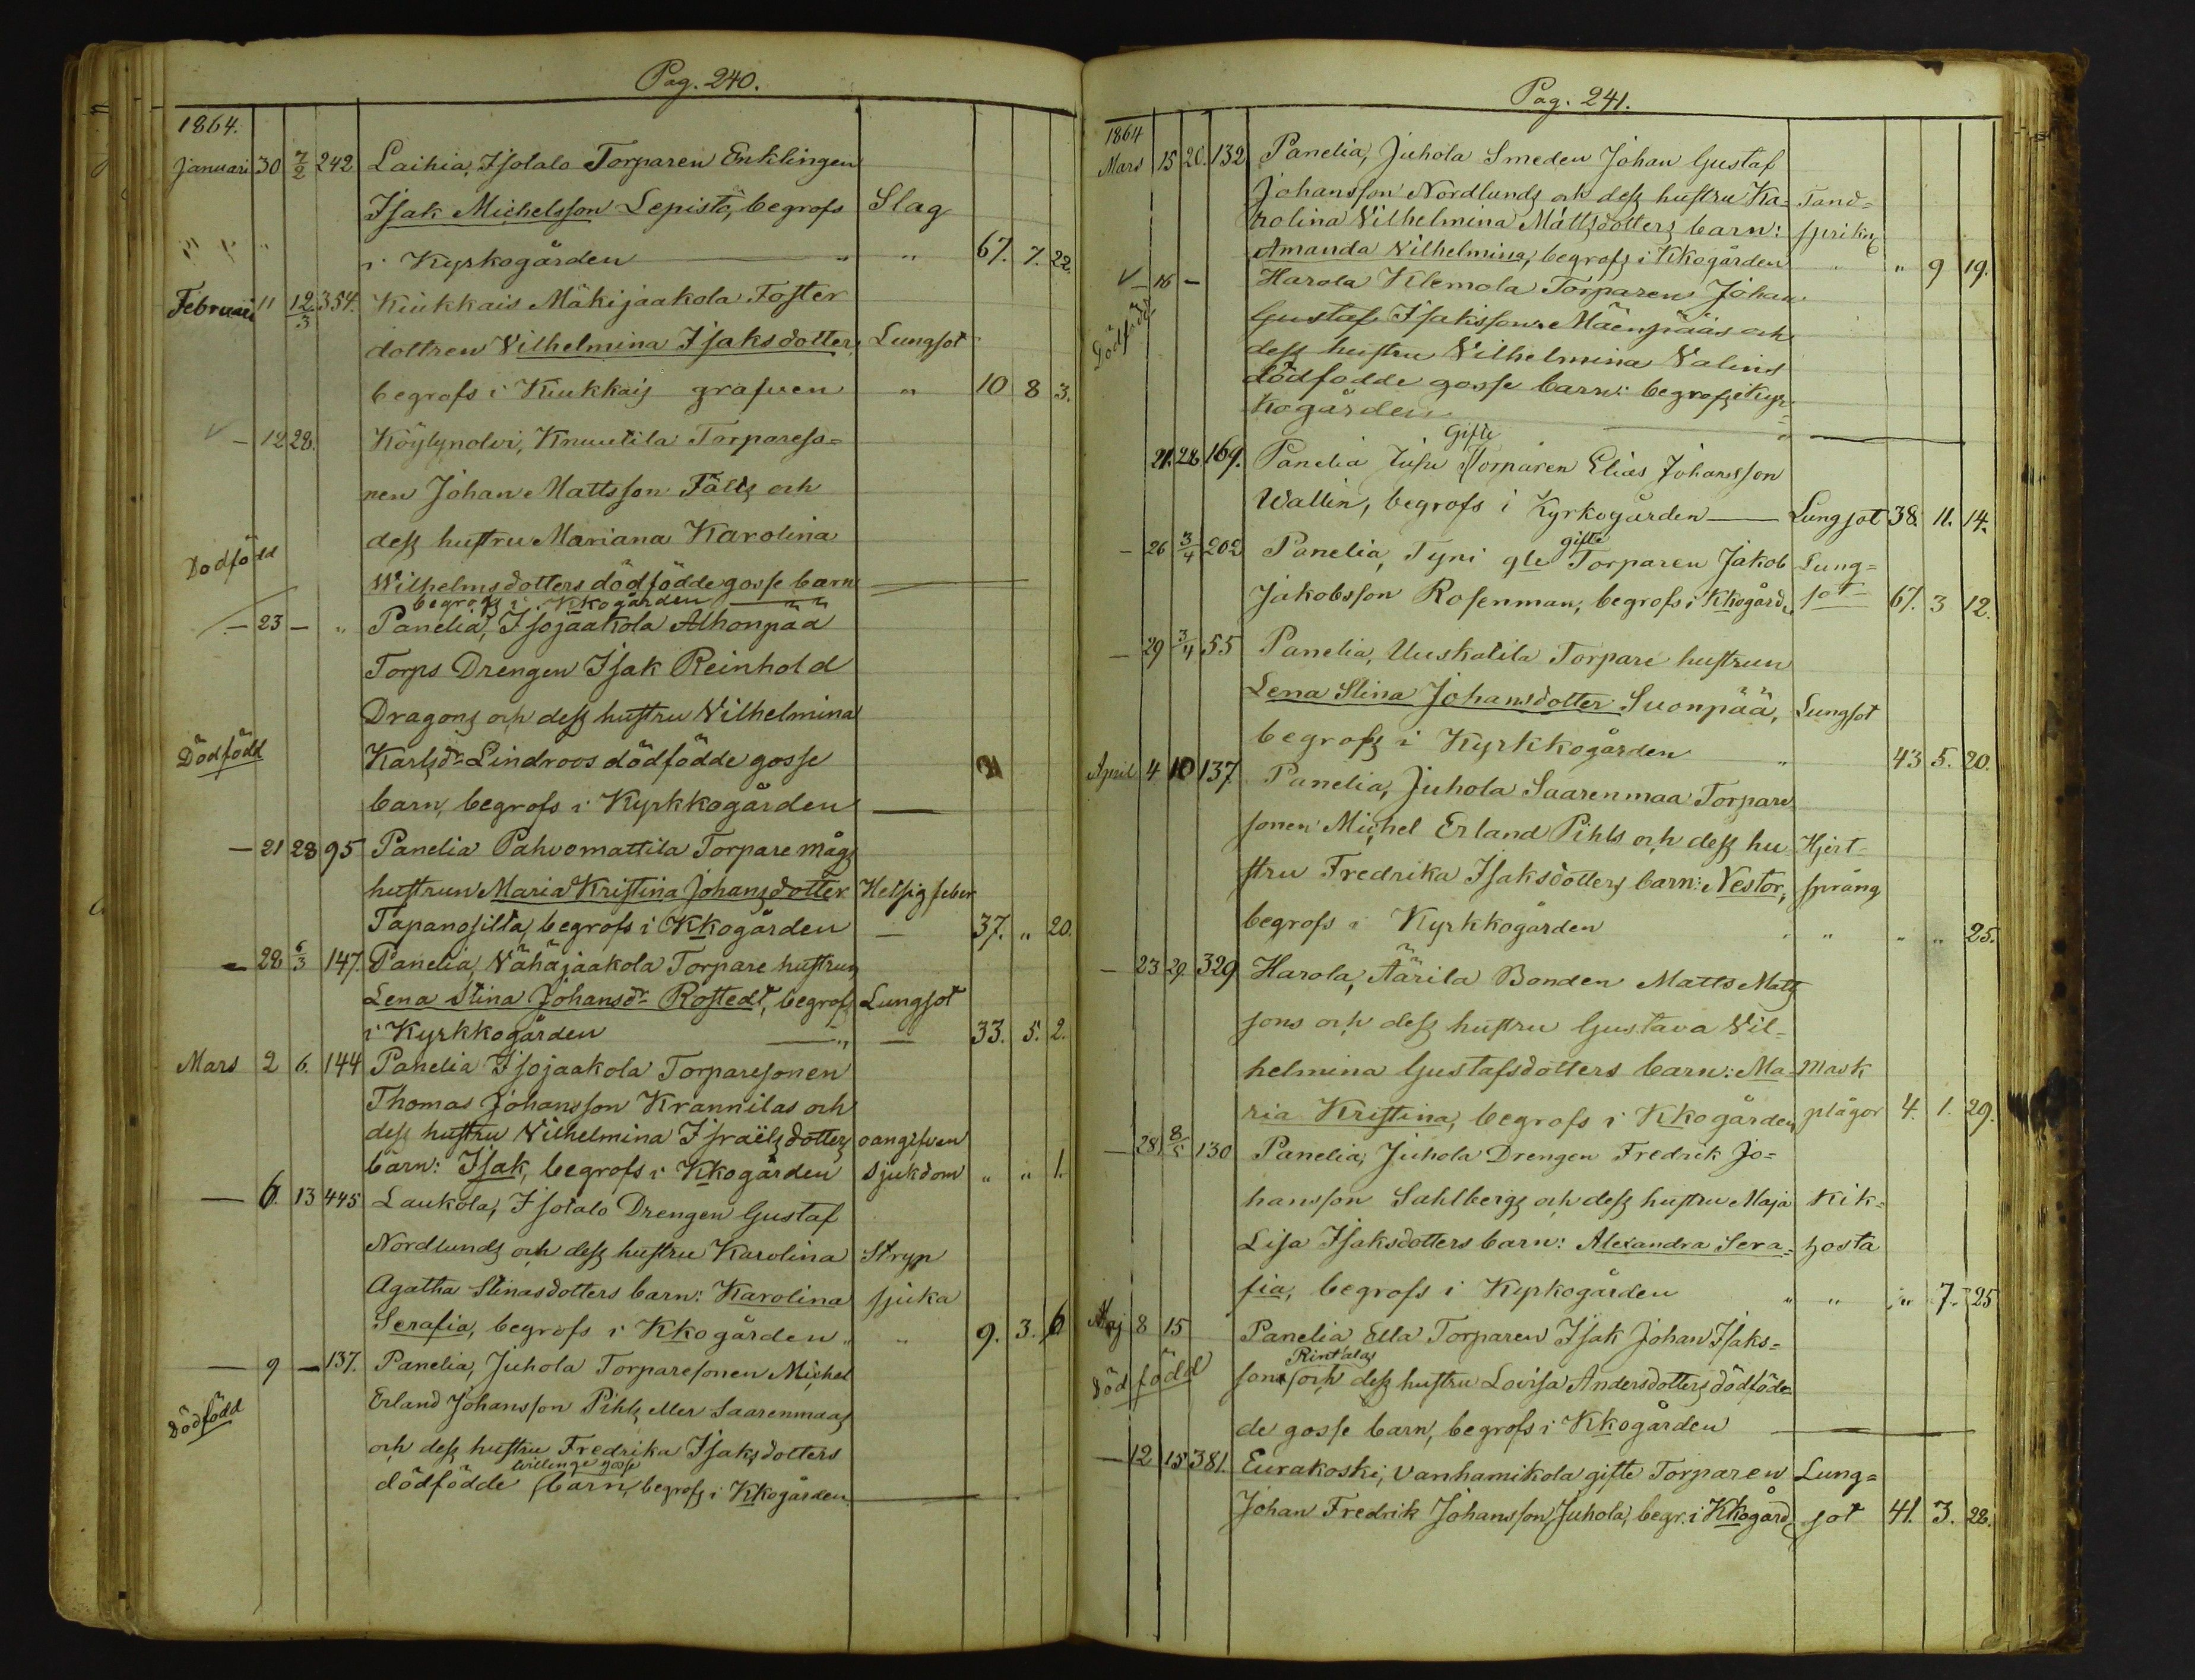 Pag. 240.
1864.
Januari 30 7/2 242 Laihia, Isolalo Torparen Enklingen
Isak Michelsson Lepistö, begrofs Slag
i Kyrkogården " " 67. 7. 22.
Februari 11 12/3 354. Kiukkais Mäkijaakola Foster
dottren Vilhelmina Isaksdotter, Lungsot
begrofs i Kiukkais grafven " 10 8 3.
- 12 28. Köylypolvi, Knuutila Torpareso=
nen Johan Mattsson Fälts och
dess hustru Mariana Karolina
Dödfödd
Wilhelmsdotters dödfödde gosse barn
begrofs i Kkogården
- 23 - " Panelia, Isojaakola Alhonpää
Torps Drengen Isak Reinhold
Dragons och dess hustru Vilhelmina
Dödfödd Karlsdr Lindroos dödfödde gosse
barn, begrofs i Kyrkkogården
- 21 28 95 Panelia Pahvomattila Torpare mågs
hustrun Maria Kristina Johansdotter Hetsig feber
Tapanosilta, begrofs i Kkogården — 37. " 20.
- 28 6/3 147. Panelia, Vähäjaakola Torpare hustrun
Lena Stina Johansdr Rostedt, begrofs Lungsot
i Kyrkkogården — 33. 5. 2.
Mars 2 6. 144 Panelia Isojaakola Torparesonen
Thomas Johansson Krannilas och
dess hustru Vilhelmina Israëlsdotters oangifven
barn: Isak, begrofs i Kkogården sjukdom " " 1.
— 6. 13 445 Laukola, Isotalo Drengen Gustaf
Nordlunds och dess hustru Karolina Stryp
Agatha Stinasdotters barn: Karolina sjuka
Serafia, begrofs i Kkogården " " 9. 3. 6
— 9 — 137. Panelia, Juhola Torparesonen Michel
Erland Johansson Pihls eller Saarenmaas
Dödfödd
och dess hustru Fredrika Isaksdotters
tvillinge gosse
dödfödde barn, begrofs i Kkogården
Pag. 241.
1864
Mars 15 20. 132 Panelia, Juhola Smeden Johan Gustaf
Johansson Nordlunds och dess hustru Ka= Tand=
rolina Vilhelmina Mattsdotters barn: sprikn
Amanda Vilhelmina, begrofs i Kkogården " " 9 19.
16 — Harola Klemola Torparen Johan
Dödfödd
Gustaf Isaksson Mäenpääs och
dess hustru Vilhelmina Valins
dödfödde gosse barn: begrofs i Kyr=
kogården
Gifte
21. 28 169. Panelia Jufu Torparen Elias Johansson
Wallin, begrofs i Kyrkogården — Lungsot 38. 11. 14.
gifte
- 26 3/4 202 Panelia, Tyni gle Torparen Jakob Lung=
Jakobsson Rosenman, begrofs i Kkogård. sot 67. 3 12.
- 29 3/4 55 Panelia, Uuskatila Torpare hustrun
Lena Stina Johansdotter Suonpää, Lungsot
begrofs i Kyrkkogården " 43 5. 20.
April 4 10 137. Panelia, Juhola Saarenmaa Torpare
sonen Michel Erland Pihls och dess hu= Hjert=
stru Fredrika Isaksdotters barn: Nestor, språng
begrofs i Kyrkkogården " " " " 25.
- 23 29. 329 Harola, Äärilä Bonden Matts Matts
sons och dess hustru Gustava Vil=
helmina Gustafsdotters barn: Ma= Mask
ria Kristina, begrofs i Kkogården plågor 4. 1. 29.
- 28 8/5 130 Panelia, Juhola Drengen Fredrik Jo=
hansson Sahlbergs och dess hustru Maja Kik=
Lisa Isaksdotters barn: Alexandra Sera= hosta
fia, begrofs i Kyrkogården " " " 7. 25
Maj 8 15 Panelia Ella Torparen Isak Johan Isaks=
Rintalas
Dödfödd sons och dess hustru Lovisa Andersdotters dödföd=
de gosse barn, begrofs i Kkogården
— 12 15 381. Eurakoski, Vanhamikola gifte Torparen Lung=
Johan Fredrik Johansson Juhola, begr. i Kkogård. sot 41. 3. 28.